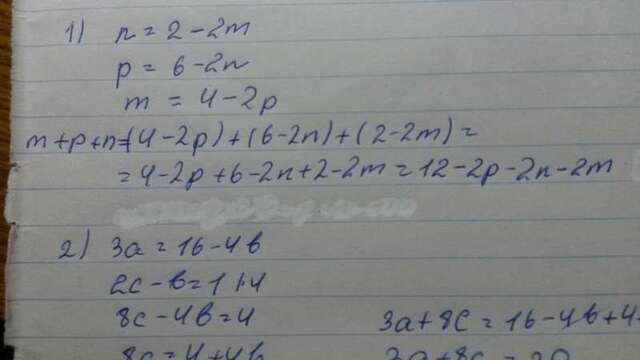 1) n = 2 - 2m
p = 6 - 2n
m = 4 - 2p
m + p + n = (4 - 2p) + (6 - 2n) + (2 - 2m) =
= 4 - 2p + 6 - 2n + 2 - 2m = 12 - 2p - 2n - 2m
2) 3a = 16 - 4b
2c - b = 1 |·4
8c - 4b = 4
3a + 8c = 16 - 4b + 4
8c = 4 + 4b
3a + 8c = 20